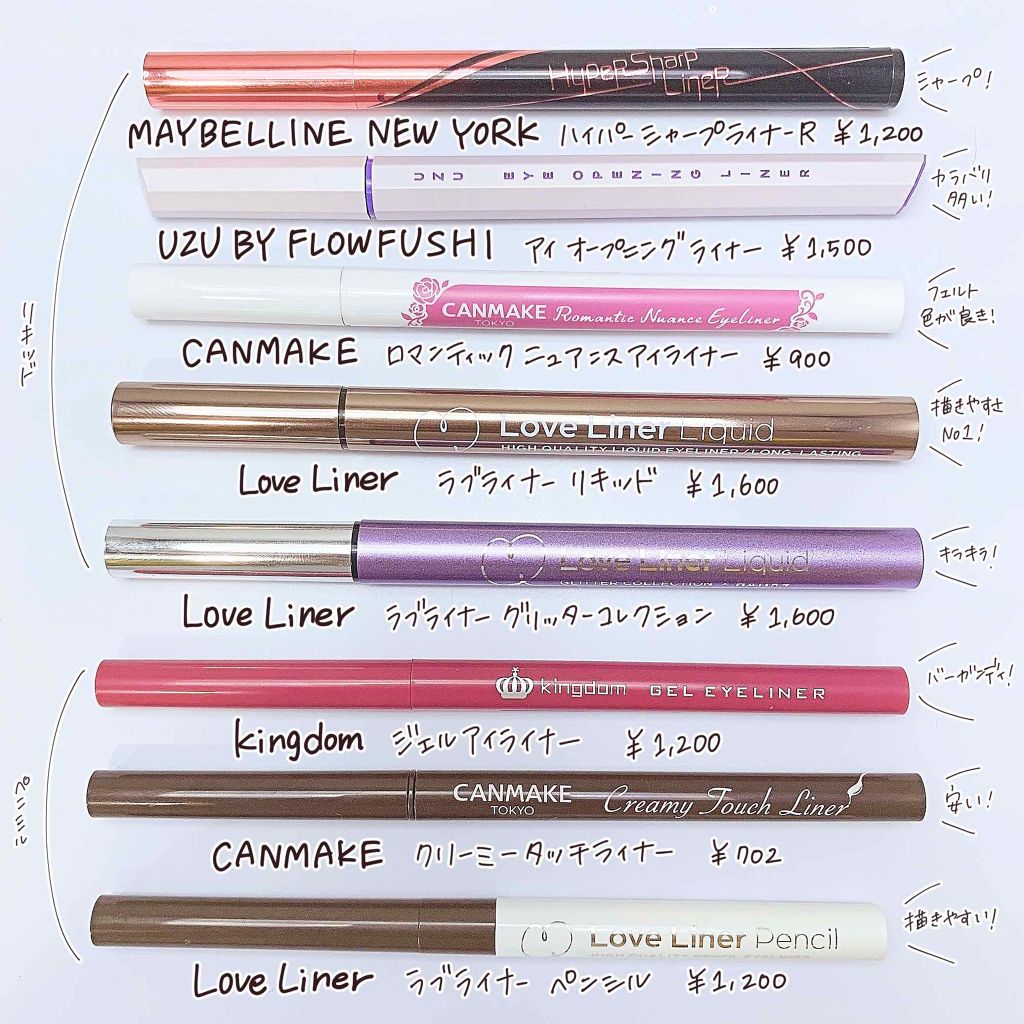 Hyper Sharp
Liner
シャープ!
MAYBELLINE NEW YORK ハイパーシャープライナーR ¥1,200
UZU EYE OPENING LINER
カラバリ
多い!
UZU BY FLOWFUSHI アイオープニングライナー ¥1,500
CANMAKE Romantic Nuance Eyeliner
TOKYO
フェルト
色が良き!
CANMAKE ロマンティックニュアンスアイライナー ¥900
リキッド
Love Liner Liquid
HIGH QUALITY LIQUID EYELINER/LONG-LASTING
描きやすさ
No1!
Love Liner ラブライナー リキッド ¥1,600
Love Liner Liquid
GLITTER COLLECTION
キラキラ!
Love Liner ラブライナー グリッターコレクション ¥1,600
kingdom GEL EYELINER
バーガンディ!
kingdom ジェルアイライナー ¥1,200
CANMAKE Creamy Touch Liner
TOKYO
安い!
CANMAKE クリーミータッチライナー ¥702
Love Liner Pencil
HIGH QUALITY PENCIL EYELINER
描きやすい!
Love Liner ラブライナー ペンシル ¥1,200